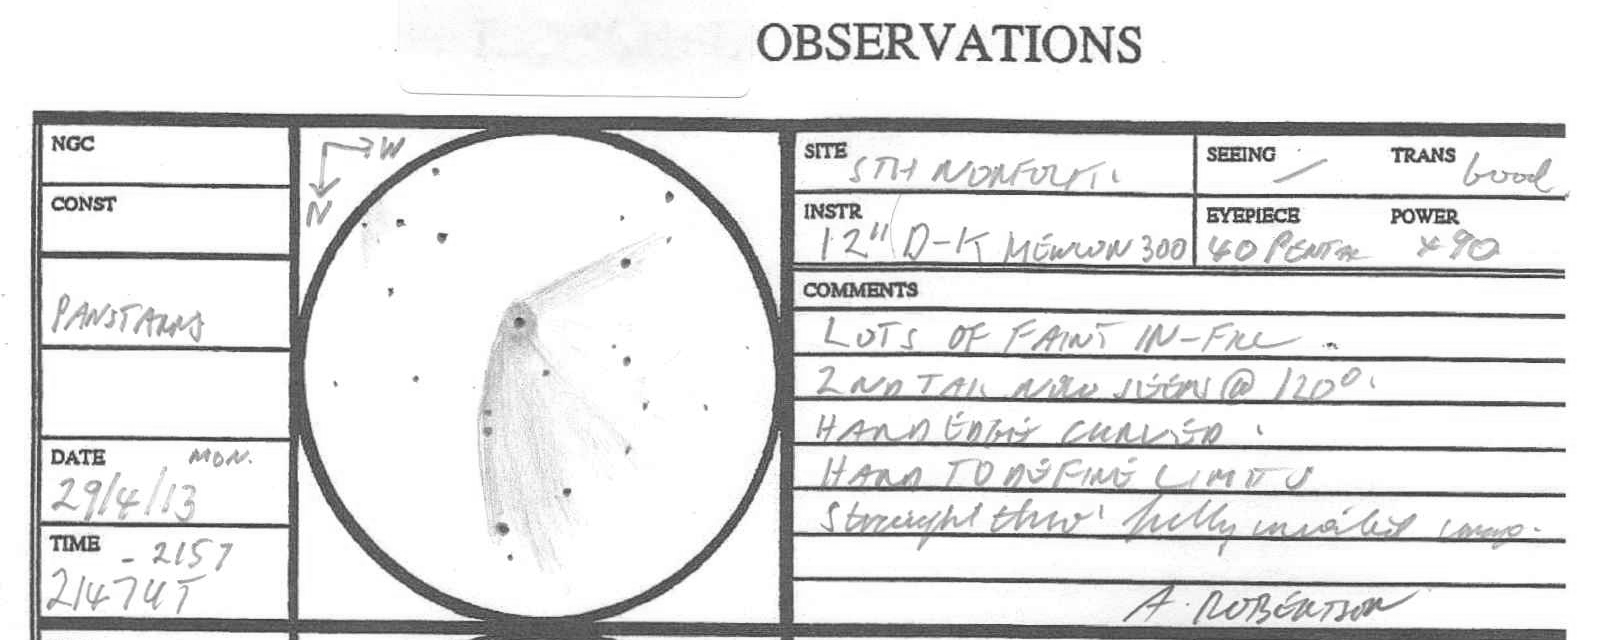 OBSERVATIONS
NGC
CONST
PANSTARRS
DATE MON.
29/4/13
TIME - 2157
2147UT
W
N
SITE STH NORFOLK.
SEEING / TRANS Good
INSTR 12" D-K MEWLON 300
EYEPIECE 40 PENTAX POWER x90
COMMENTS
LOTS OF FAINT IN-FILL
2ND TAIL NOW SEEN @ 120°.
HARD EDGE CURVED.
HARD TO DEFINE LIMITS
Straight thro' fully inverted image.
A. ROBERTSON